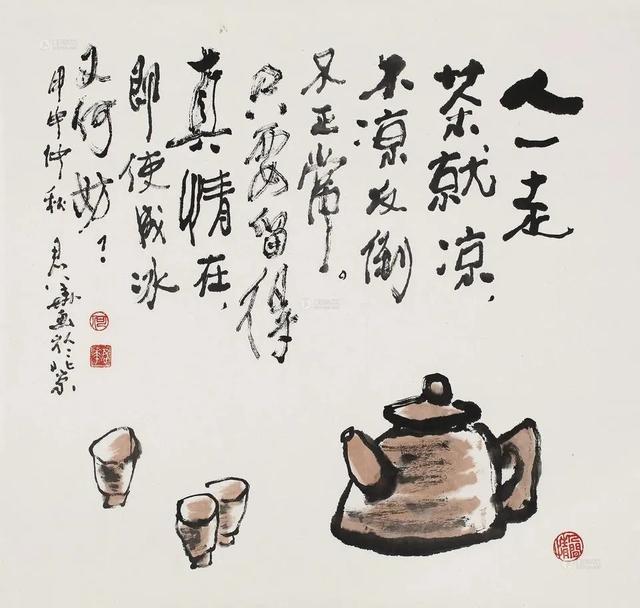 人一走
茶就凉，
不凉反倒
不正常。
只要留得
真情在，
即使成冰
又何妨？
甲申仲秋
君 画于北京